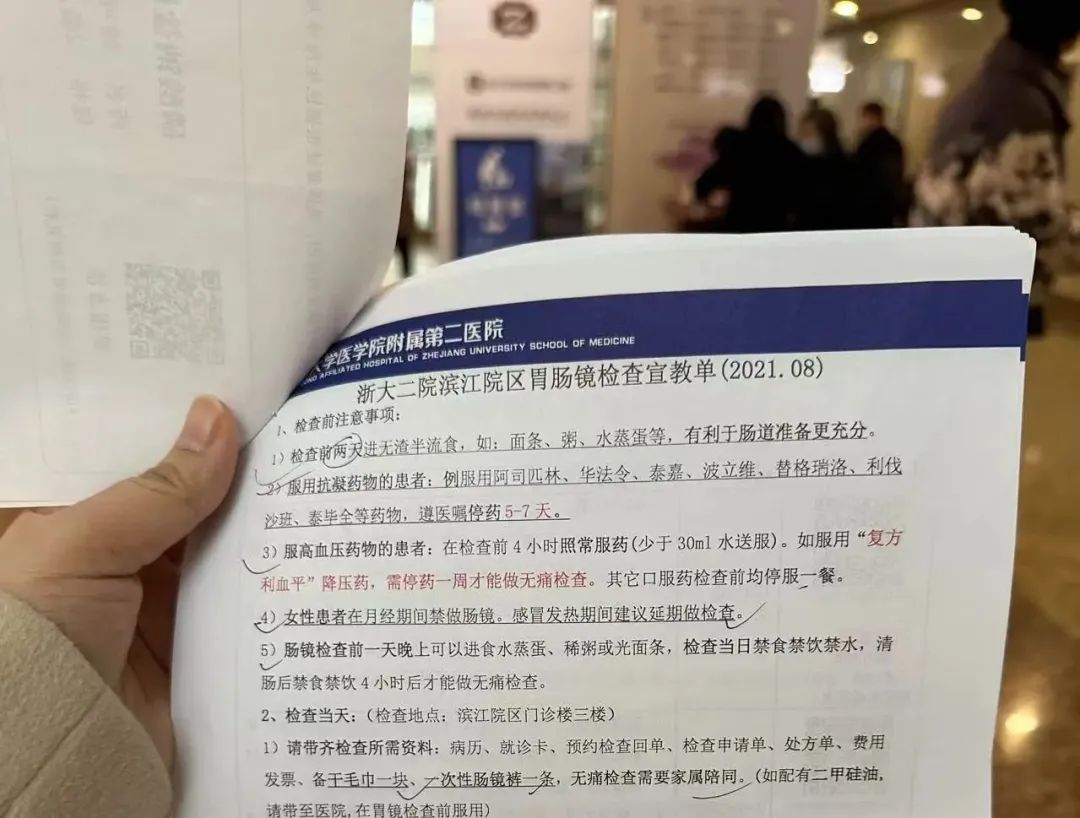 学医学院附属第二医院
AFFILIATED HOSPITAL OF ZHEJIANG UNIVERSITY SCHOOL OF MEDICINE
浙大二院滨江院区胃肠镜检查宣教单(2021.08)
1、检查前注意事项：
1）检查前两天进无渣半流食，如：面条、粥、水蒸蛋等，有利于肠道准备更充分。
2）服用抗凝药物的患者：例服用阿司匹林、华法令、泰嘉、波立维、替格瑞洛、利伐
沙班、泰毕全等药物，遵医嘱停药5-7天。
3）服高血压药物的患者：在检查前4小时照常服药(少于30ml水送服)。如服用“复方
利血平”降压药，需停药一周才能做无痛检查。其它口服药检查前均停服一餐。
4）女性患者在月经期间禁做肠镜。感冒发热期间建议延期做检查。
5）肠镜检查前一天晚上可以进食水蒸蛋、稀粥或光面条，检查当日禁食禁饮禁水，清
肠后禁食禁饮4小时后才能做无痛检查。
2、检查当天：（检查地点：滨江院区门诊楼三楼）
1）请带齐检查所需资料：病历、就诊卡、预约检查回单、检查申请单、处方单、费用
发票、备干毛巾一块、一次性肠镜裤一条，无痛检查需要家属陪同。(如配有二甲硅油,
请带至医院,在胃镜检查前服用)